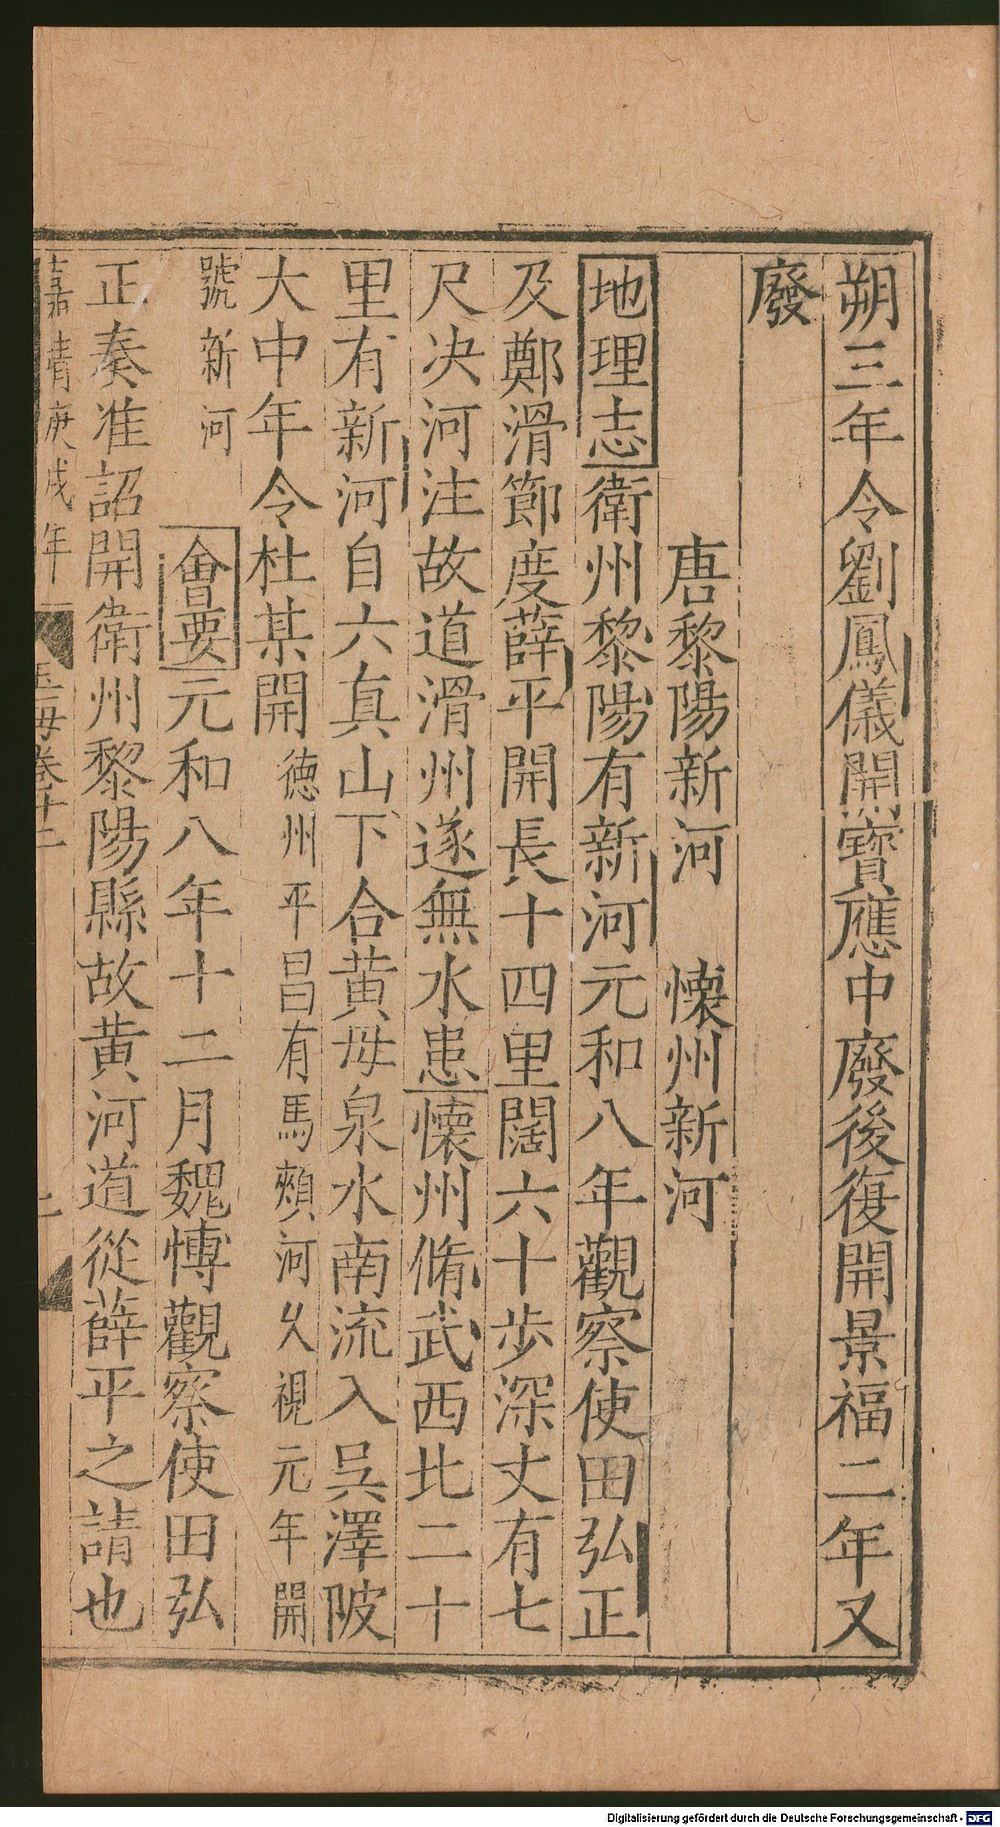 朔三年令劉鳳儀開寶應中廢後復開景福二年又
廢
唐黎陽新河　懷州新河
地理志衛州黎陽有新河元和八年觀察使田弘正
及鄭滑節度薛平開長十四里闊六十步深丈有七
尺决河注故道滑州遂無水患懷州脩武西北二十
里有新河自六真山下合黃母泉水南流入吳澤陂
大中年令杜某開德州平昌有馬頰河久視元年開
號新河
會要元和八年十二月魏愽觀察使田弘
正奏准詔開衛州黎陽縣故黃河道從薛平之請也
嘉靖庚戌年
玉海卷十二
Digitalisierung gefördert durch die Deutsche Forschungsgemeinschaft - DFG